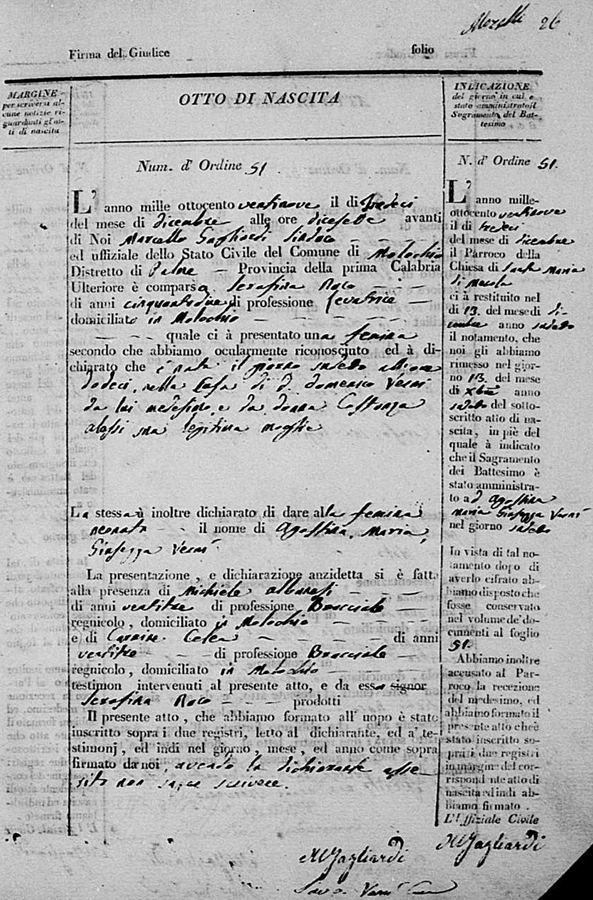 26
Firma del Giudice folio
MARGINE
per scriversi al-
cune notizie ri-
guardanti gl'at-
ti di nascita
OTTO DI NASCITA
Num. d' Ordine 51.
L' anno mille ottocento ventinove il dì tredeci
del mese di dicembre alle ore diecesette avanti
di Noi Marcello Gagliardi Sindaco
ed uffiziale dello Stato Civile del Comune di Molochio
Distretto di Palme — Provincia della prima Calabria
Ulteriore è comparsa Serafina Roco
di anni cinquantadue di professione levatrice
domiciliato in Molochio
quale ci à presentato una femina
secondo che abbiamo ocularmente riconosciuto ed à di-
chiarato che è nata il giorno sudetto alle ore
dodeci, nella Casa di D. Domenico Verni
da lui medesimo, e da donna Costanza
alessi sua legitima moglie
La stessa à inoltre dichiarato di dare alla femina
neonata il nome di Agostina, Maria,
Giuseppa Verni
La presentazione, e dichiarazione anzidetta si è fatta
alla presenza di Michiele albanesi
di anni ventitre di professione Bracciale
regnicolo, domiciliato in Molochio
e di Carmine Celea di anni
ventitre di professione Bracciale
regnicolo, domiciliato in Molochio
testimon intervenuti al presente atto, e da essa signor
Serafina Roco prodotti
Il presente atto, che abbiamo formato all' uopo è stato
inscritto sopra i due registri, letto al dichiarante, ed a' te-
stimonj, ed indi nel giorno, mese, ed anno come sopra
firmato da noi, avendo la dichiarante asse
rito non saper scrivere.
MGagliardi
INDICAZIONE
del giorno in cui è
stato amministrato il
Sagramento del Bat-
tesimo
N. d' Ordine 51.
L' anno mille-
ottocento ventinove
il dì tredeci
del mese di dicembre
il Parroco della
Chiesa di Santa Maria
di Merola
ci à restituito nel
di 13. del mese di di-
cembre anno sudetto
il notamento, che
noi gli abbiamo
rimesso nel gior-
no 13. del mese
di Xbre anno
sudetto del sotto-
scritto atto di na-
scita, in piè del
quale à indicato
che il Sagramento
del Battesimo è
stato amministra-
to a D. Agostina
Maria Giuseppa Verni
nel giorno sudetto
In vista di tal no-
tamento dopo di
averlo cifrato ab-
biamo disposto che
fosse conservato
nel volume de' do-
cumenti al foglio
51.
Abbiamo inoltre
accusato al Par-
roco la recezione
del medesimo, ed
abbiamo formato il
presente atto che è
stato inscritto so-
pra i due registri
in margine del cor-
rispondente atto di
nascita ed indi ab-
biamo firmato.
L'Uffiziale Civile
MGagliardi